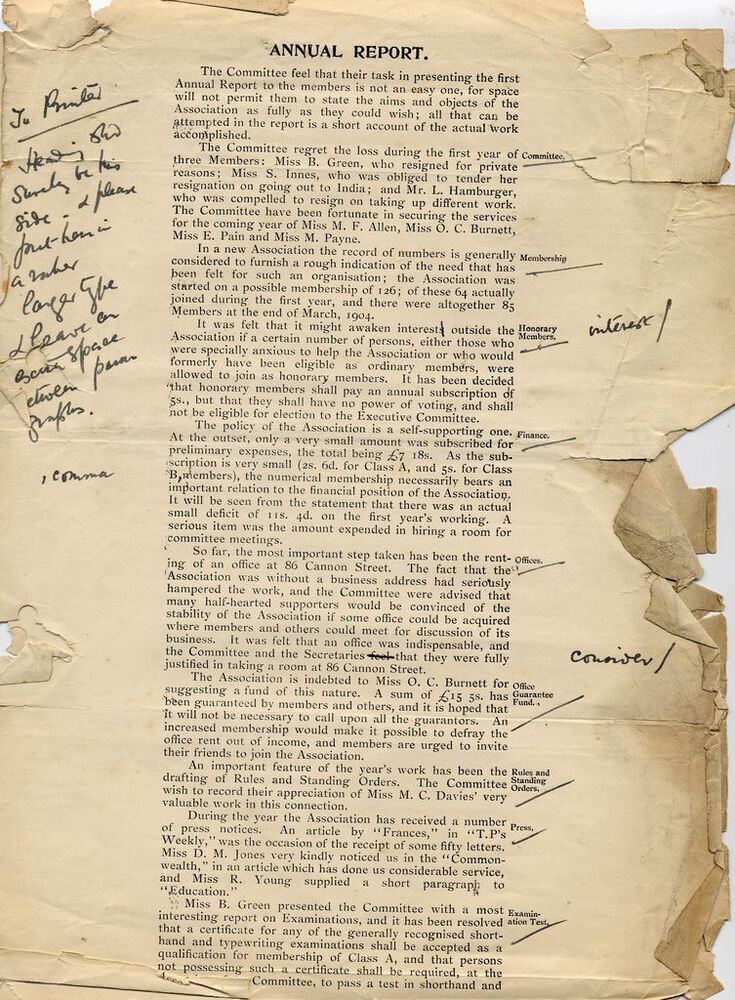 ANNUAL REPORT.
The Committee feel that their task in presenting the first
Annual Report to the members is not an easy one, for space
will not permit them to state the aims and objects of the
Association as fully as they could wish; all that can be
attempted in the report is a short account of the actual work
accomplished.
The Committee regret the loss during the first year of
Committee.
three Members: Miss B. Green, who resigned for private
reasons; Miss S. Innes, who was obliged to tender her
resignation on going out to India; and Mr. L. Hamburger,
who was compelled to resign on taking up different work.
The Committee have been fortunate in securing the services
for the coming year of Miss M. F. Allen, Miss O. C. Burnett,
Miss E. Pain and Miss M. Payne.
In a new Association the record of numbers is generally
Membership
considered to furnish a rough indication of the need that has
been felt for such an organisation; the Association was
started on a possible membership of 126; of these 64 actually
joined during the first year, and there were altogether 85
Members at the end of March, 1904.
It was felt that it might awaken interest outside the
Honorary
Members.
Association if a certain number of persons, either those who
were specially anxious to help the Association or who would
formerly have been eligible as ordinary members, were
allowed to join as honorary members. It has been decided
that honorary members shall pay an annual subscription of
5s., but that they shall have no power of voting, and shall
not be eligible for election to the Executive Committee.
The policy of the Association is a self-supporting one.
Finance.
At the outset, only a very small amount was subscribed for
preliminary expenses, the total being £7 18s. As the sub-
scription is very small (2s. 6d. for Class A, and 5s. for Class
B, members), the numerical membership necessarily bears an
important relation to the financial position of the Association.
It will be seen from the statement that there was an actual
small deficit of 11s. 4d. on the first year's working. A
serious item was the amount expended in hiring a room for
committee meetings.
So far, the most important step taken has been the rent-
Offices.
ing of an office at 86 Cannon Street. The fact that the
Association was without a business address had seriously
hampered the work, and the Committee were advised that
many half-hearted supporters would be convinced of the
stability of the Association if some office could be acquired
where members and others could meet for discussion of its
business. It was felt that an office was indispensable, and
the Committee and the Secretaries feel that they were fully
justified in taking a room at 86 Cannon Street.
The Association is indebted to Miss O. C. Burnett for
Office
Guarantee
Fund.
suggesting a fund of this nature. A sum of £15 5s. has
been guaranteed by members and others, and it is hoped that
it will not be necessary to call upon all the guarantors. An
increased membership would make it possible to defray the
office rent out of income, and members are urged to invite
their friends to join the Association.
An important feature of the year's work has been the
Rules and
Standing
Orders.
drafting of Rules and Standing Orders. The Committee
wish to record their appreciation of Miss M. C. Davies' very
valuable work in this connection.
During the year the Association has received a number
Press.
of press notices. An article by "Frances," in "T.P's
Weekly," was the occasion of the receipt of some fifty letters.
Miss D. M. Jones very kindly noticed us in the "Common-
wealth," in an article which has done us considerable service,
and Miss R. Young supplied a short paragraph to
"Education."
Miss B. Green presented the Committee with a most
Examin-
ation Test.
interesting report on Examinations, and it has been resolved
that a certificate for any of the generally recognised short-
hand and typewriting examinations shall be accepted as a
qualification for membership of Class A, and that persons
not possessing such a certificate shall be required, at the
Committee, to pass a test in shorthand and
To Printer
Heading shd
surely be this
side - & please
put them in
a rather
larger type
& leave an
extra space
between para
graphs.
, comma
interest /
consider /